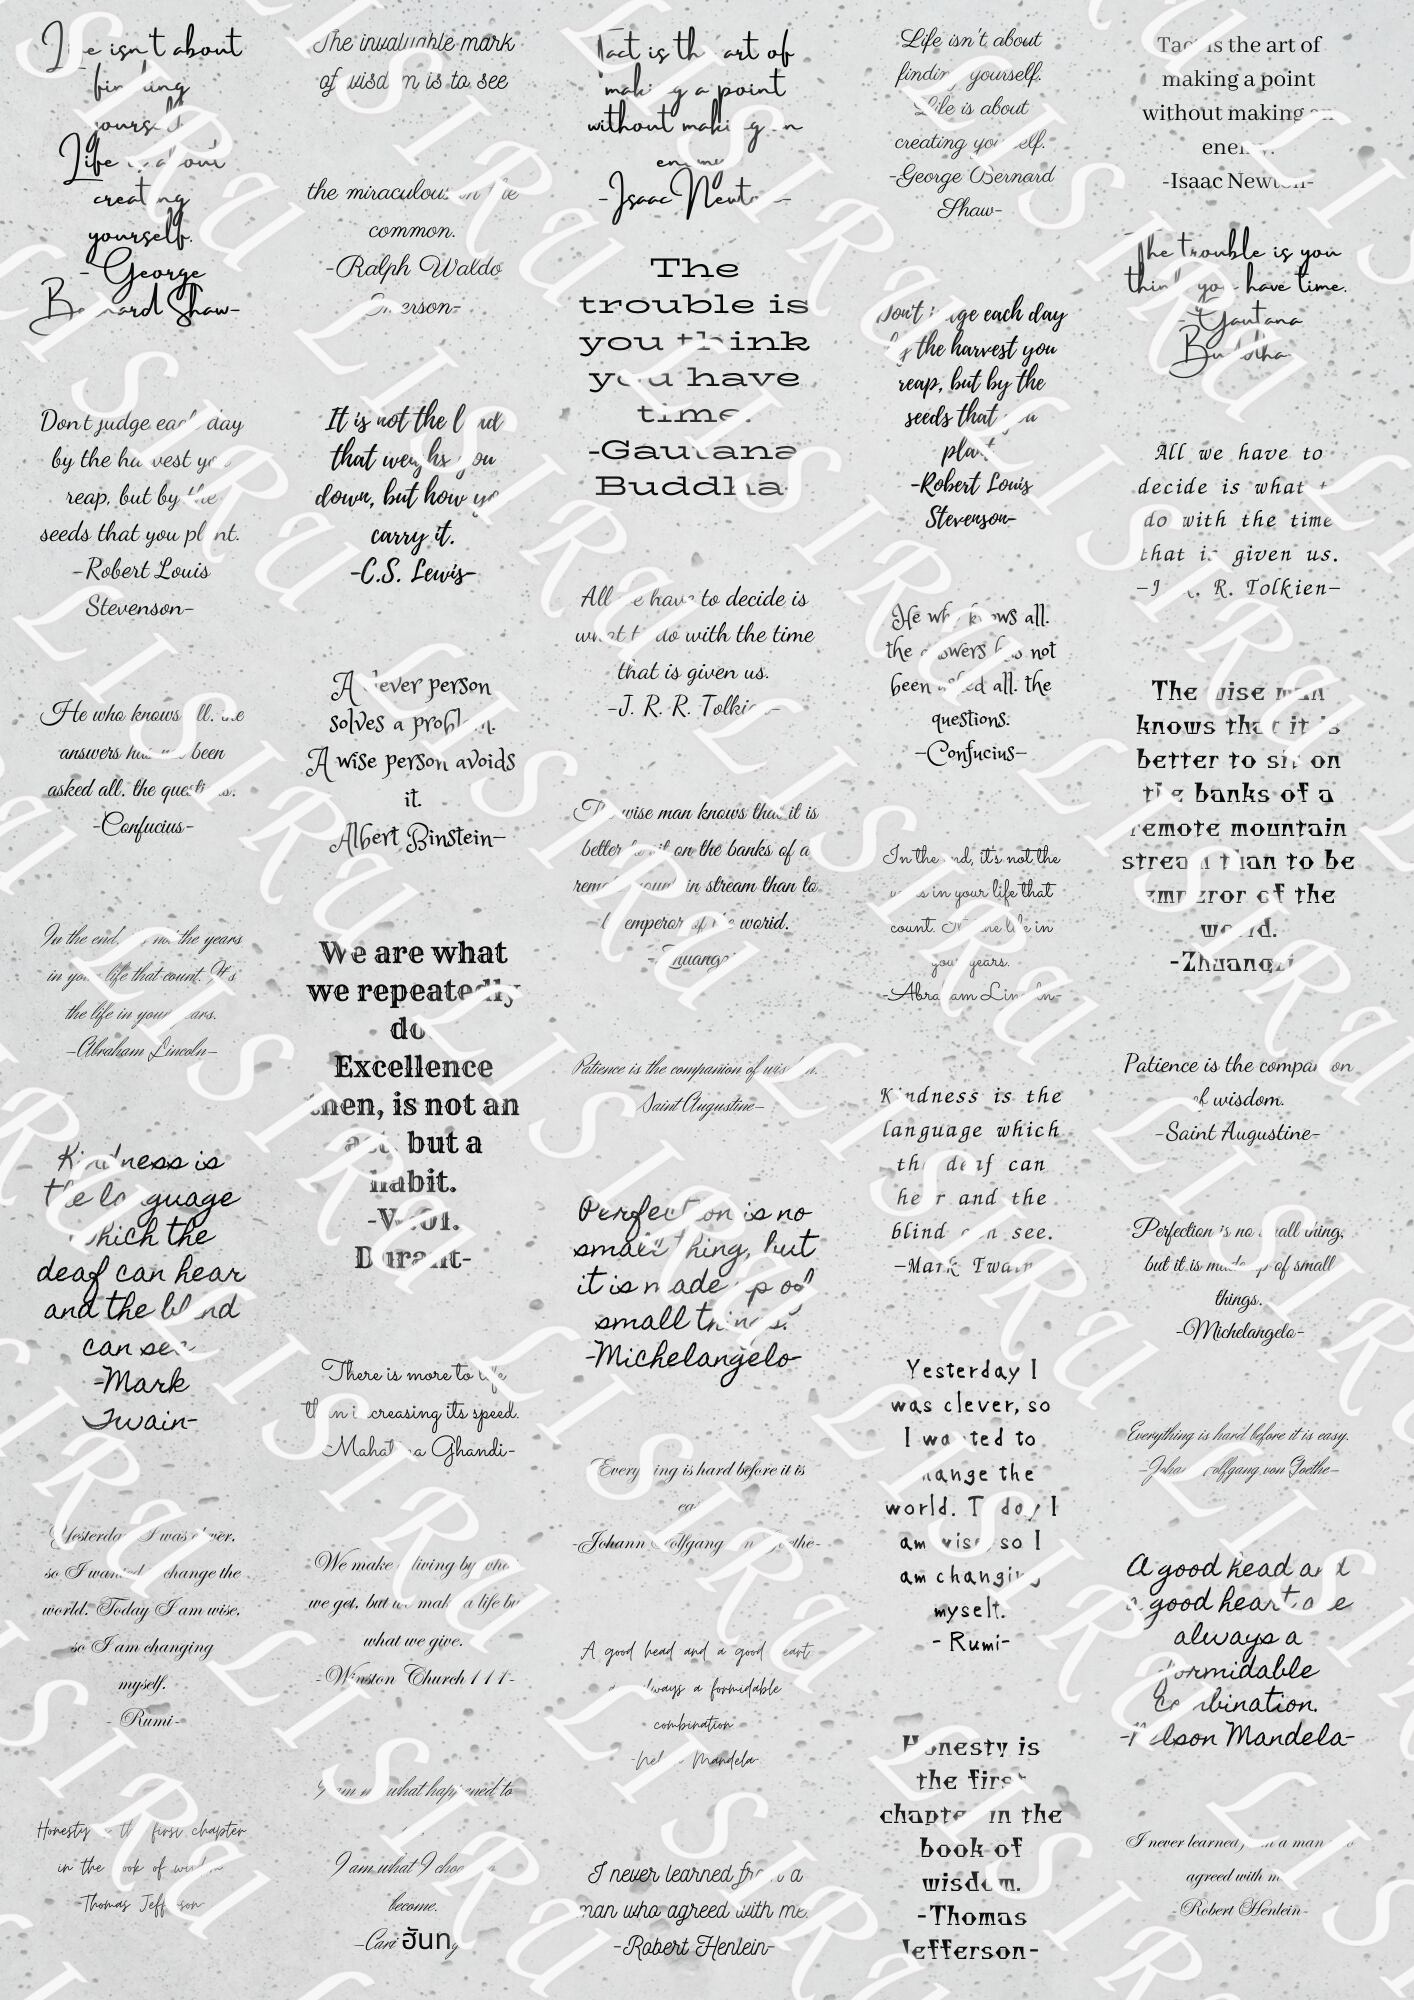 Life isn't about
finding
yourself.
Life is about
creating
yourself.
-George
Bernard Shaw-
Don't judge each day
by the harvest you
reap, but by the
seeds that you plant.
-Robert Louis
Stevenson-
He who knows all. the
answers has not been
asked all. the questions.
-Confucius-
In the end, it's not the years
in your life that count. It's
the life in your years.
-Abraham Lincoln-
Kindness is
the language
which the
deaf can hear
and the blind
can see.
-Mark
Twain-
Yesterday I was clever,
so I wanted to change the
world. Today I am wise,
so I am changing
myself.
- Rumi-
Honesty is the first chapter
in the book of wisdom
Thomas Jefferson-
The invaluable mark
of wisdom is to see
the miraculous in the
common.
-Ralph Waldo
Emerson-
It is not the load
that weighs you
down, but how you
carry it.
-C.S. Lewis-
A clever person
solves a problem.
A wise person avoids
it.
Albert Binstein-
We are what
we repeatedly
do.
Excellence
then, is not an
act, but a
habit.
-Will
Durant-
There is more to life
than increasing its speed.
-Mahatma Ghandi-
We make a living by what
we get, but we make a life by
what we give.
-Winston Church111-
I am not what happened to
I am what I choose to
become.
-Carl ฮันg
Tact is the art of
making a point
without making an
enemy.
-Isaac Newton-
The
trouble is
you think
you have
time.
-Gautana
Buddha-
All we have to decide is
what to do with the time
that is given us.
-J. R. R. Tolkien-
The wise man knows that it is
better to sit on the banks of a
remote mountain stream than to
be emperor of the worid.
-Zhuangzi-
Patience is the companion of wisdom.
Saint Augustine-
Perfection is no
small thing, but
it is made up of
small things.
-Michelangelo-
Everything is hard before it is
easy.
-Johann Wolfgang von Goethe-
A good head and a good heart
are always a formidable
combination
-Nelson Mandela-
I never learned from a
man who agreed with me.
-Robert Henlein-
Life isn't about
finding yourself.
Life is about
creating yourself.
-George Bernard
Shaw-
Don't judge each day
by the harvest you
reap, but by the
seeds that you
plant.
-Robert Louis
Stevenson-
He who knows all.
the answers has not
been asked all. the
questions.
-Confucius-
In the end, it's not the
years in your life that
count. It's the life in
your years.
-Abraham Lincoln-
Kindness is the
language which
the deaf can
hear and the
blind can see.
-Mark Twain-
Yesterday I
was clever, so
I wanted to
change the
world. Today I
am wise, so I
am changing
myself.
- Rumi-
Honesty is
the first
chapter in the
book of
wisdom.
-Thomas
Jefferson-
Tact is the art of
making a point
without making an
enemy.
-Isaac Newton-
The trouble is you
think you have time.
-Gautana
Buddha-
All we have to
decide is what to
do with the time
that is given us.
-J. R. R. Tolkien-
The wise man
knows that it is
better to sit on
the banks of a
remote mountain
stream than to be
emperor of the
world.
-Zhuangzi-
Patience is the companion
of wisdom.
-Saint Augustine-
Perfection is no small thing,
but it is made up of small
things.
-Michelangelo-
Everything is hard before it is easy.
-Johann Wolfgang von Goethe-
A good head and
a good heart are
always a
formidable
combination.
-Nelson Mandela-
I never learned from a man who
agreed with me.
-Robert Henlein-
LISIRau